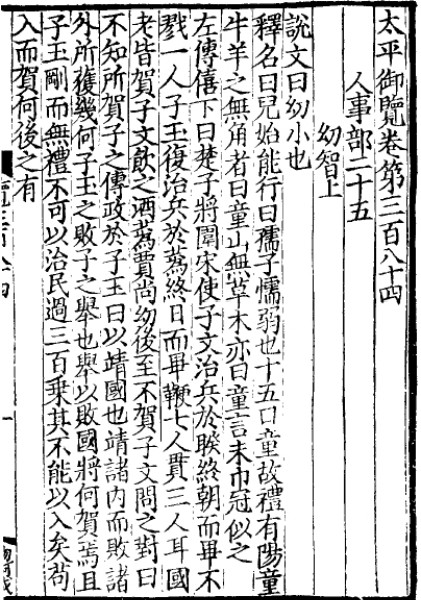 太平御覽卷第三百八十四
人事部二十五
幼智上
說文曰幼小也
釋名曰兒始能行曰孺子懦弱也十五曰童故禮有陽童
牛羊之無角者曰童山無草木亦曰童言未巾冠似之
左傳僖下曰楚子將圍宋使子文治兵於睽終朝而畢不
戮一人子玉復治兵於蒍終日而畢鞭七人貫三人耳國
老皆賀子文飲之酒蒍賈尚幼後至不賀子文問之對曰
不知所賀子之傳政於子玉曰以靖國也靖諸内而敗諸
外所獲幾何子玉之敗子之舉也舉以敗國將何賀焉且
子玉剛而無禮不可以治民過三百乗其不能以入矣苟
入而賀何後之有